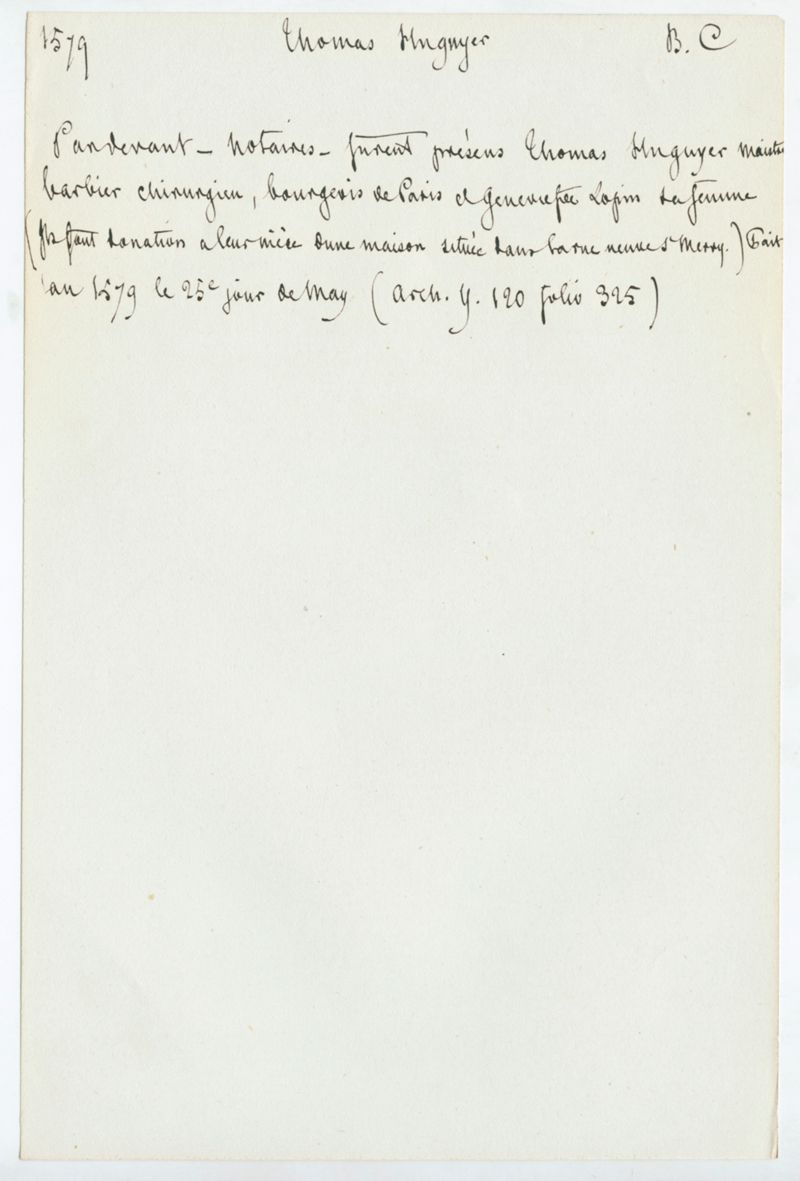 1579 Thomas Huguyer B. C
Pardevant – Notaires – furent présens Thomas Huguyer maistre
barbier chirurgien, bourgeois de Paris et Geneviefve Lopin sa femme
(Ils font donation a leur nièce d'une maison située dans la rue neuve St Merry.) Fait
l'an 1579 le 25e jour de May (Arch. Y. 120 folio 325)